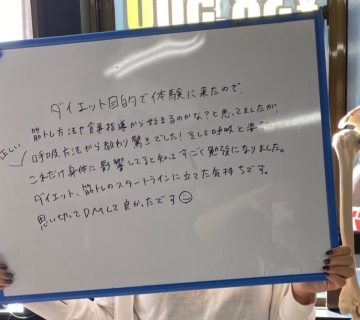 ダイエット目的で体験に来たので、
筋トレ方法や食事指導から始まるのかな?と思ってましたが、
正しい
呼吸方法から教わり驚きでした!そして呼吸と
これだけ身体に影響してると知ってすごく勉強になりました。
ダイエット、筋トレのスタートラインに立てた気持ちです。
思い切ってDMして良かったです☺